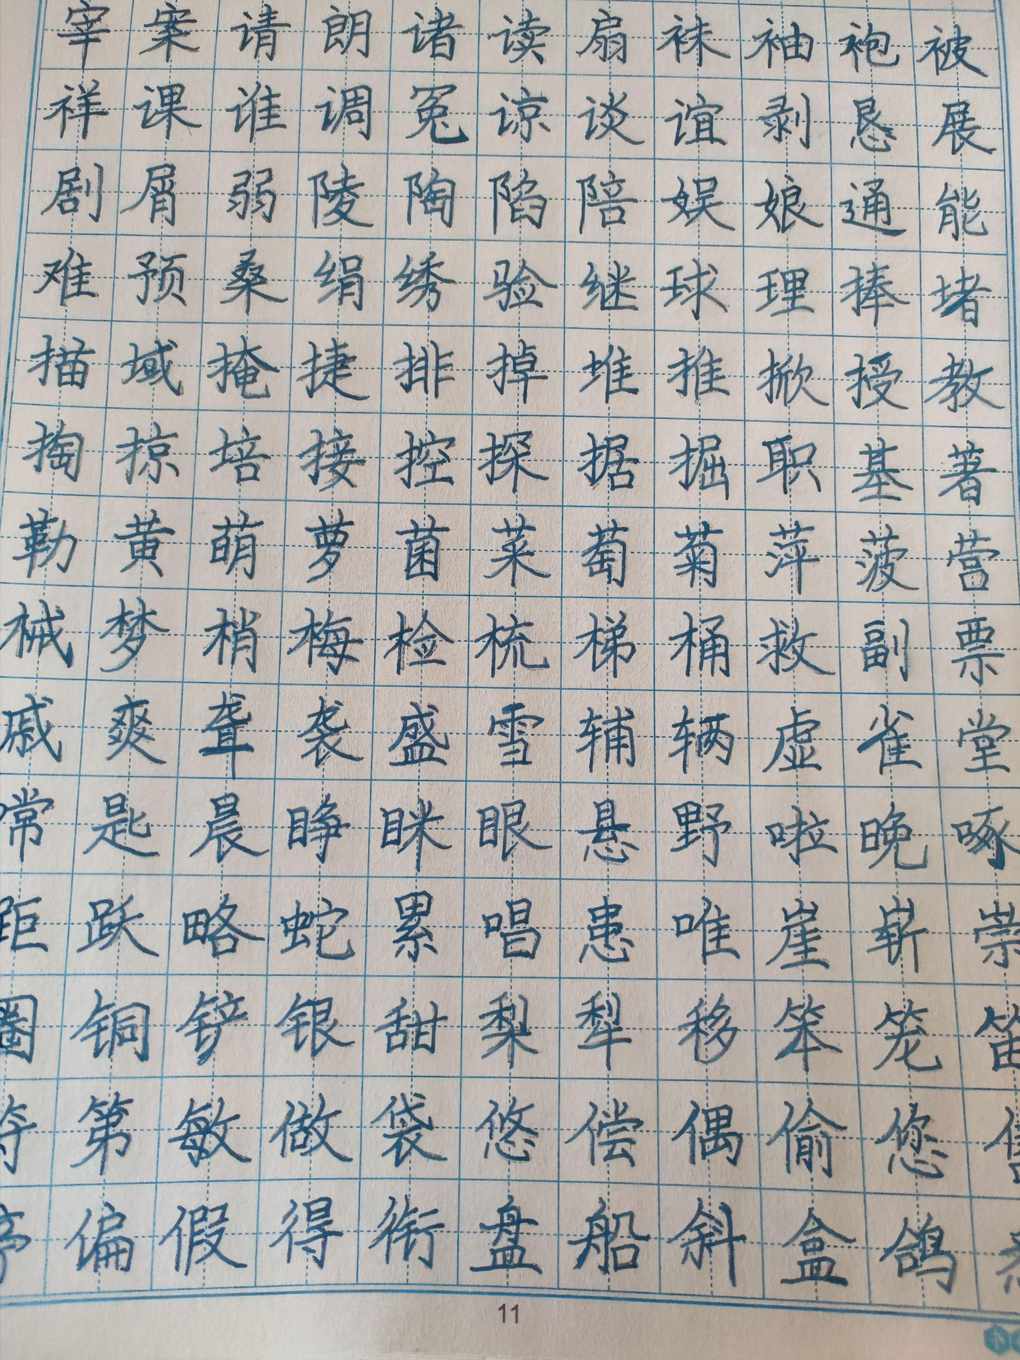 宰案请朗诸读扇袜袖袍被
祥课谁调冤谅谈谊剥恳展
剧屑弱陵陶陷陪娱娘通能
难预桑绢绣验继球理捧堵
描域掩捷排掉堆推掀授教
掏掠培接控探据掘职基著
勒黄萌萝菌菜萄菊萍菠营
械梦梢梅检梳梯桶救副票
戚爽聋袭盛雪辅辆虚雀堂
常匙晨睁眯眼悬野啦晚啄
距跃略蛇累唱患唯崖崭崇
圈铜铲银甜梨犁移笨笼笛
符第敏做袋悠偿偶偷您售
停偏假得衔盘船斜盒鸽
11